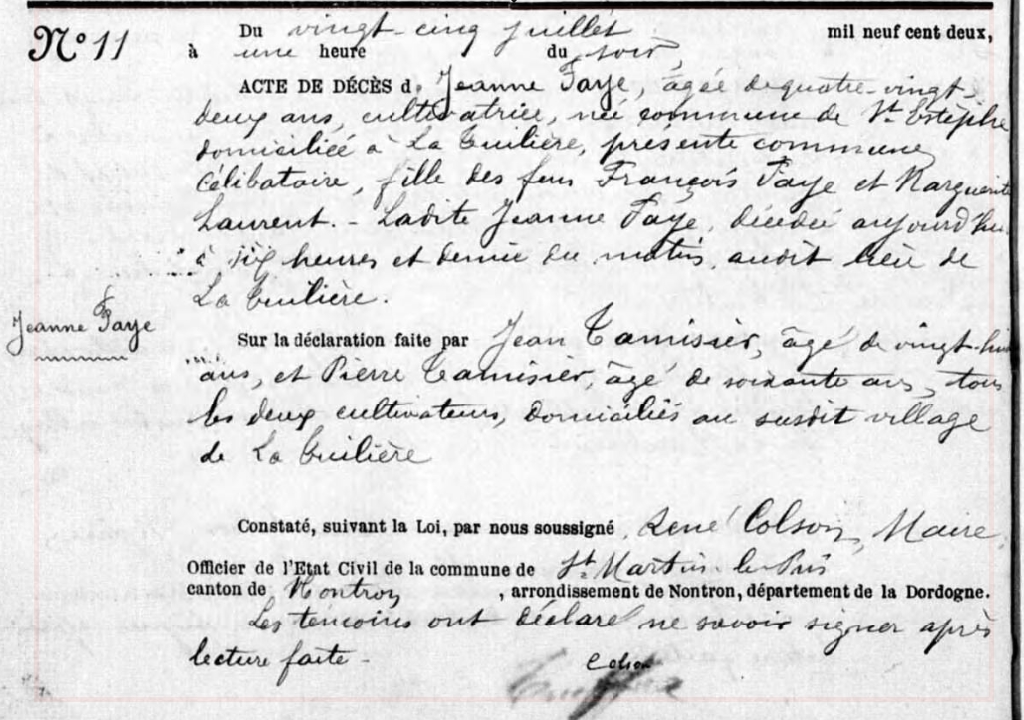 N° 11
Du vingt-cinq juillet mil neuf cent deux,
à une heure du soir,
ACTE DE DÉCÈS d. Jeanne Faye, âgée de quatre-vingt-
deux ans, cultivatrice, née commune de St Estèphe
domiciliée à La Tuilière, présente commune,
célibataire, fille des feus François Faye et Marguerite
Laurent. - Ladite Jeanne Faye, décédée aujourd'hui
à six heures et demie du matin, audit lieu de
La Tuilière.
Jeanne Faye
Sur la déclaration faite par Jean Tamisier, âgé de vingt-huit
ans, et Pierre Tamisier, âgé de soixante ans, tous
les deux cultivateurs, domiciliés au susdit village
de La Tuilière
Constaté, suivant la Loi, par nous soussigné René Colson, Maire,
Officier de l'Etat Civil de la commune de St Martin le Pin
canton de Nontron, arrondissement de Nontron, département de la Dordogne.
Les témoins ont déclaré ne savoir signer après
lecture faite -
Colson